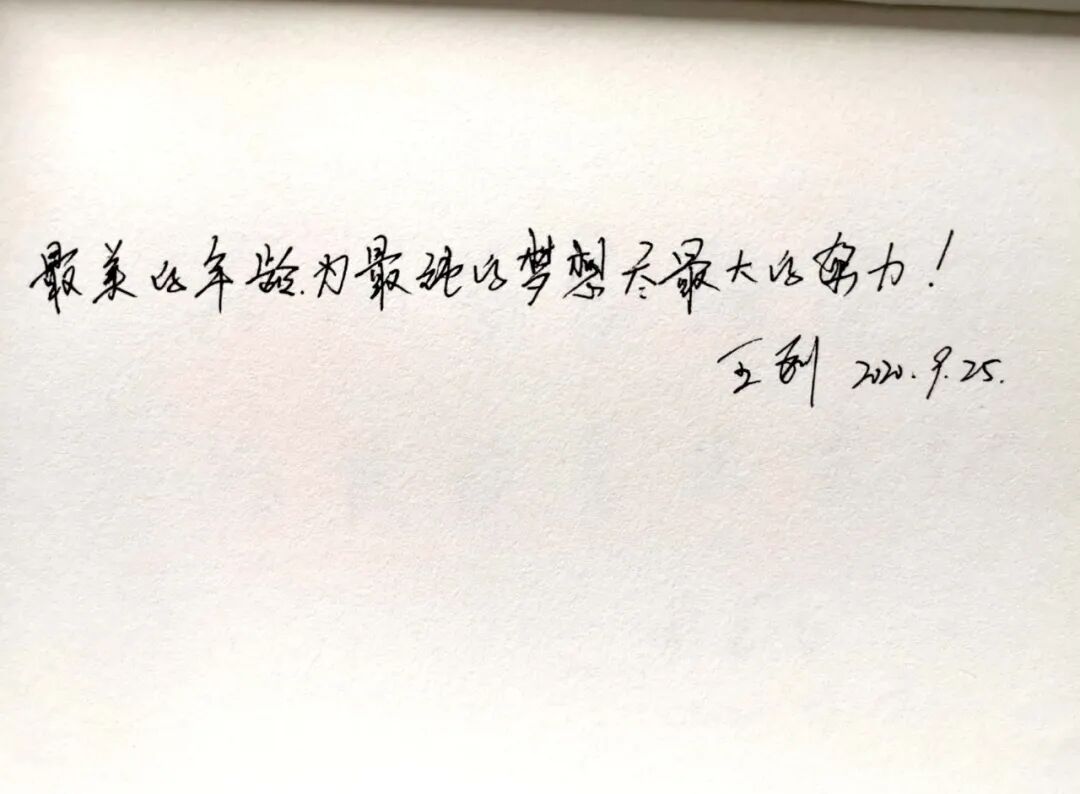 最美的年龄.为最纯的梦想尽最大的努力!
王 2020.9.25.